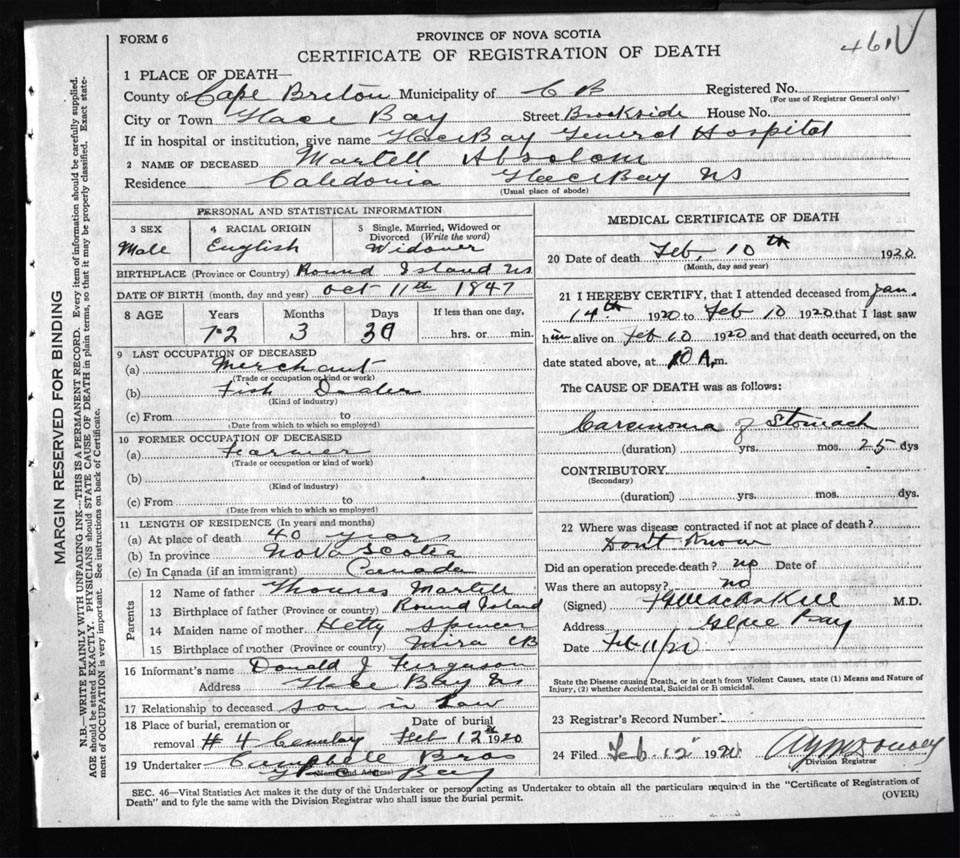 FORM 6
PROVINCE OF NOVA SCOTIA
461
CERTIFICATE OF REGISTRATION OF DEATH
1 PLACE OF DEATH—
County of Cape Breton Municipality of C B Registered No.
(For use of Registrar General only)
City or Town Glace Bay Street Brookside House No.
If in hospital or institution, give name Glace Bay General Hospital
2 NAME OF DECEASED Martell Absolom
Residence Caledonia Glace Bay NS
(Usual place of abode)
PERSONAL AND STATISTICAL INFORMATION
3 SEX 4 RACIAL ORIGIN 5 Single, Married, Widowed or Divorced (Write the word)
Male English Widower
BIRTHPLACE (Province or Country) Round Island NS
DATE OF BIRTH (month, day and year) Oct 11th 1847
8 AGE Years Months Days If less than one day,
72 3 30 hrs. or min.
9 LAST OCCUPATION OF DECEASED
(a) Merchant
(Trade or occupation or kind or work)
(b) Fish Dealer
(Kind of industry)
(c) From to
(Date from which to which so employed)
10 FORMER OCCUPATION OF DECEASED
(a) Farmer
(Trade or occupation or kind of work)
(b)
(Kind of industry)
(c) From to
(Date from which to which so employed)
11 LENGTH OF RESIDENCE (In years and months)
(a) At place of death 40 years
(b) In province Nova Scotia
(c) In Canada (if an immigrant) Canada
Parents
12 Name of father Thomas Martell
13 Birthplace of father (Province or country) Round Island
14 Maiden name of mother Hetty Spencer
15 Birthplace of mother (Province or country) Mira CB
16 Informant's name Donald J Ferguson
Address Glace Bay NS
17 Relationship to deceased Son in Law
18 Place of burial, cremation or removal #4 Date of burial Feb 12th 1920
19 Undertaker Campbell Bros
Glace Bay
MEDICAL CERTIFICATE OF DEATH
20 Date of death Feb, 10th 1920
(Month, day and year)
21 I HEREBY CERTIFY, that I attended deceased from Jan.
14th 1920 to Feb 10 1920 that I last saw
him alive on Feb 10 1920 and that death occurred, on the
date stated above, at 10 A.m.
The CAUSE OF DEATH was as follows:
Carcinoma of Stomach
(duration) yrs. mos. 25 dys
CONTRIBUTORY
(Secondary)
(duration) yrs. mos. dys.
22 Where was disease contracted if not at place of death?
Don't Know
Did an operation precede death? no Date of
Was there an autopsy? no
(Signed) M.D.
Address Glace Bay
Date Feb 11/20
State the Disease causing Death, or in death from Violent Causes, state (1) Means and Nature of
Injury, (2) whether Accidental, Suicidal or Homicidal.
23 Registrar's Record Number
24 Filed Feb. 12 1920
Division Registrar
SEC. 46—Vital Statistics Act makes it the duty of the Undertaker or person acting as Undertaker to obtain all the particulars required in the "Certificate of Registration of
Death" and to fyle the same with the Division Registrar who shall issue the burial permit.
(OVER)
MARGIN RESERVED FOR BINDING
N.B.—WRITE PLAINLY WITH UNFADING INK—THIS IS A PERMANENT RECORD. Every item of information should be carefully supplied.
AGE should be stated EXACTLY. PHYSICIANS should STATE CAUSE OF DEATH in plain terms, so that it may be properly classified. Exact state-
ment of OCCUPATION is very important. See instructions on back of Certificate.